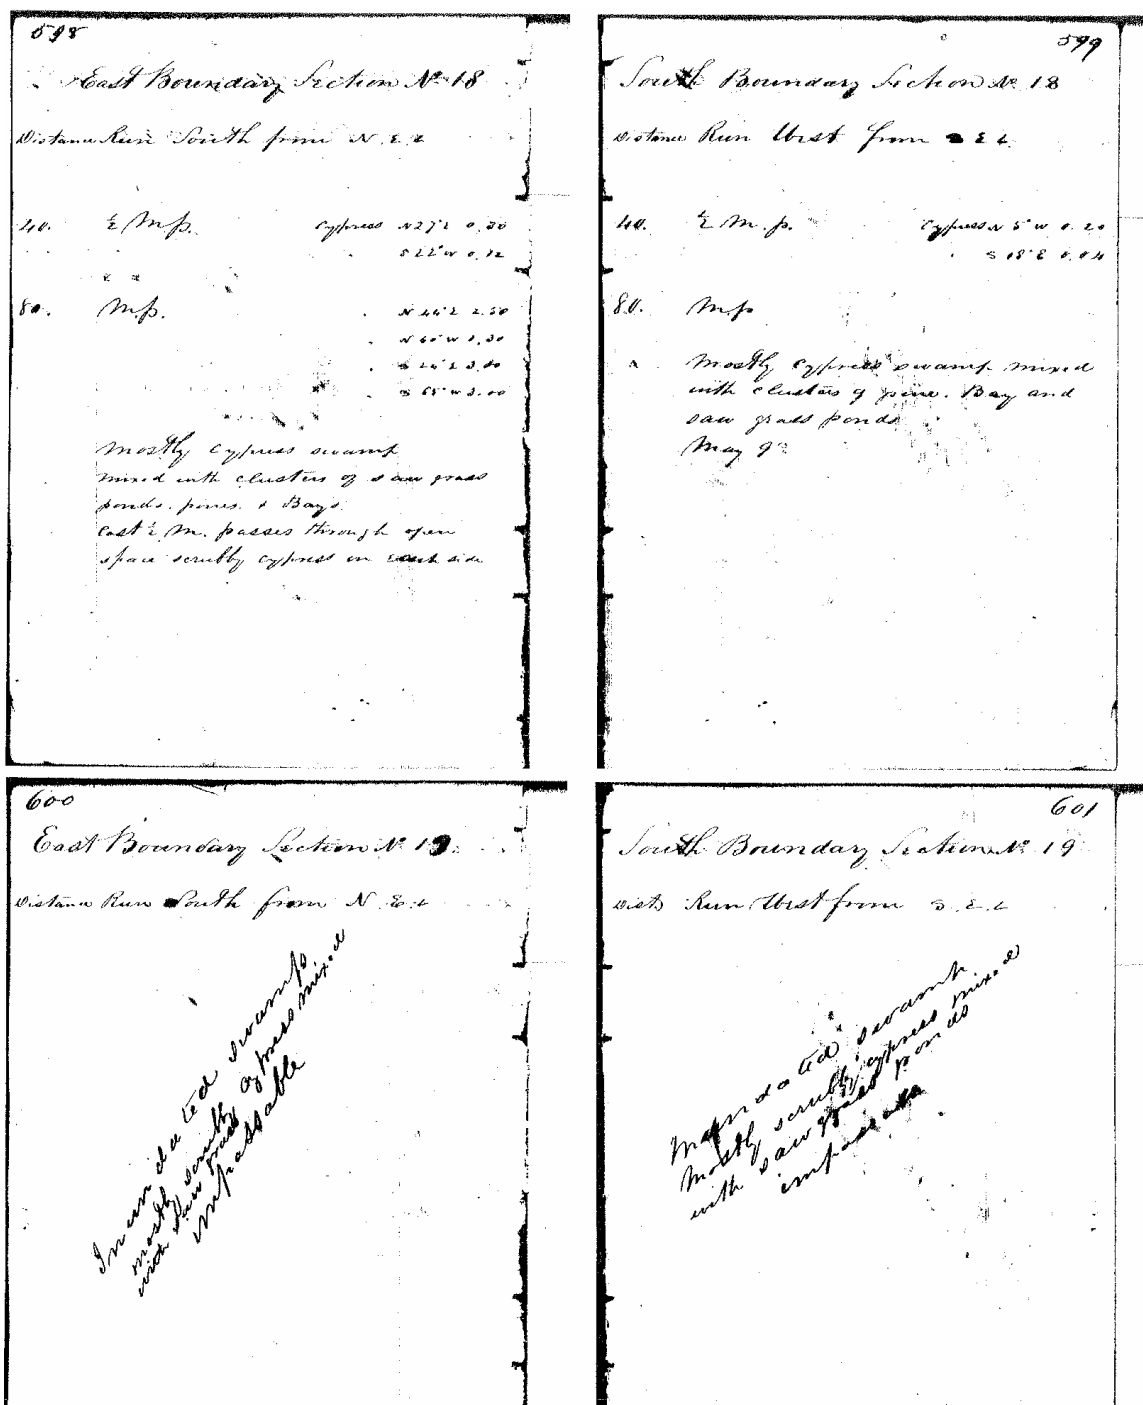 598
East Boundary Section No 18
Distance Run South from N. E. C
40. ½ M.p. Cypress N27°E 0.30
S22°W 0.12
80. M.p. N44°E 2.50
N60°W 3.30
E 3.00
S65°W 3.00
Mostly cypress swamp
mixed with clusters of saw grass
ponds. pines. & Bays.
East ½ M. passes through open
space scrubby cypress on each side
599
South Boundary Section No 18
Distance Run West from S E C.
40. ½ M.p. Cypress N 5°W 0.20
S 18°E 0.04
80. M.p
Mostly cypress swamp mixed
with clusters of pine. Bay and
saw grass ponds
May 9
600
East Boundary Section No 19.
Distance Run South from N. E. C
Inundated swamp
mostly scrubby cypress mixed
with saw grass
impassable
601
South Boundary Section No 19
Dists Run West from S. E. C
Inundated swamp
mostly scrubby cypress mixed
with saw grass ponds